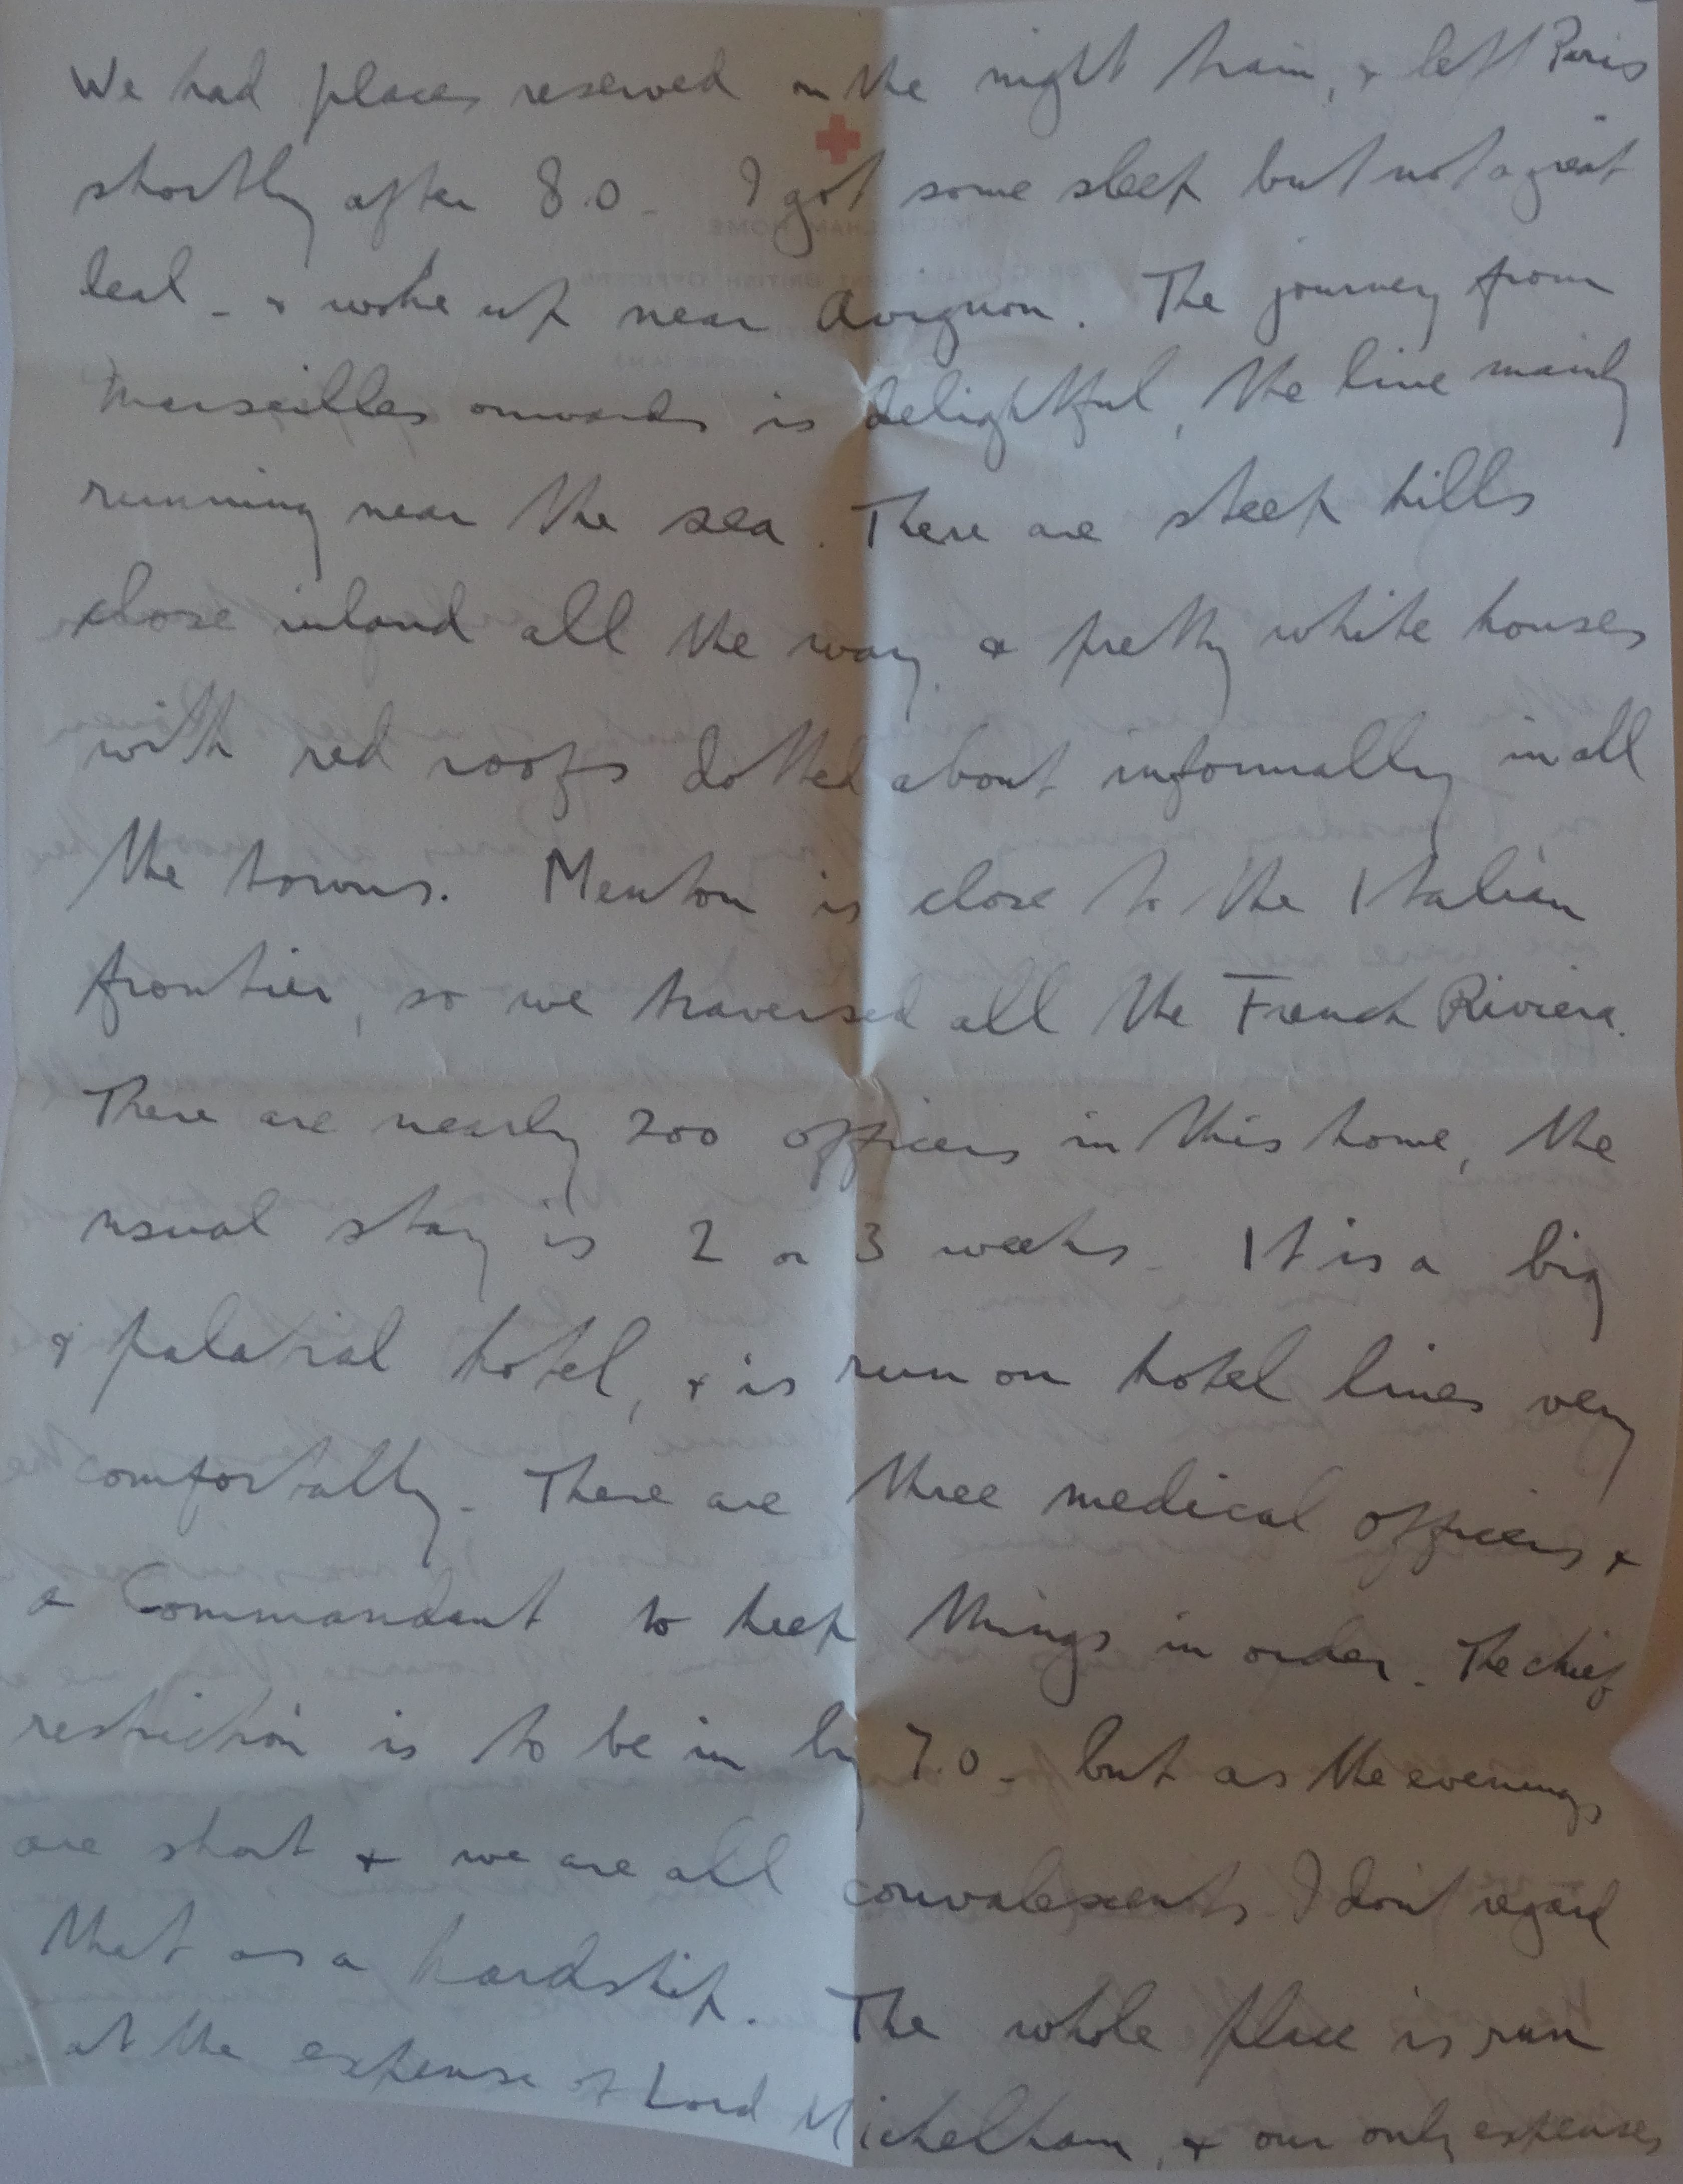 We had places reserved on the night train, & left Paris
shortly after 8.0 - I got some sleep but not a great
deal - & woke up near Avignon. The journey from
Marseilles onwards is delightful, the line mainly
running near the sea. There are steep hills
close inland all the way & pretty white houses
with red roofs dotted about informally in all
the towns. Menton is close to the Italian
frontier, so we traversed all the French Riviera.
There are nearly 200 officers in this home, the
usual stay is 2 or 3 weeks - It is a big
& palatial hotel, & is run on hotel lines very
comfortably. There are three medical officers &
a Commandant to keep things in order. The chief
restriction is to be in by 7.0 - but as the evenings
are short & we are all convalescents I don't regard
that as a hardship. The whole place is run
at the expense of Lord Michelham, & our only expenses